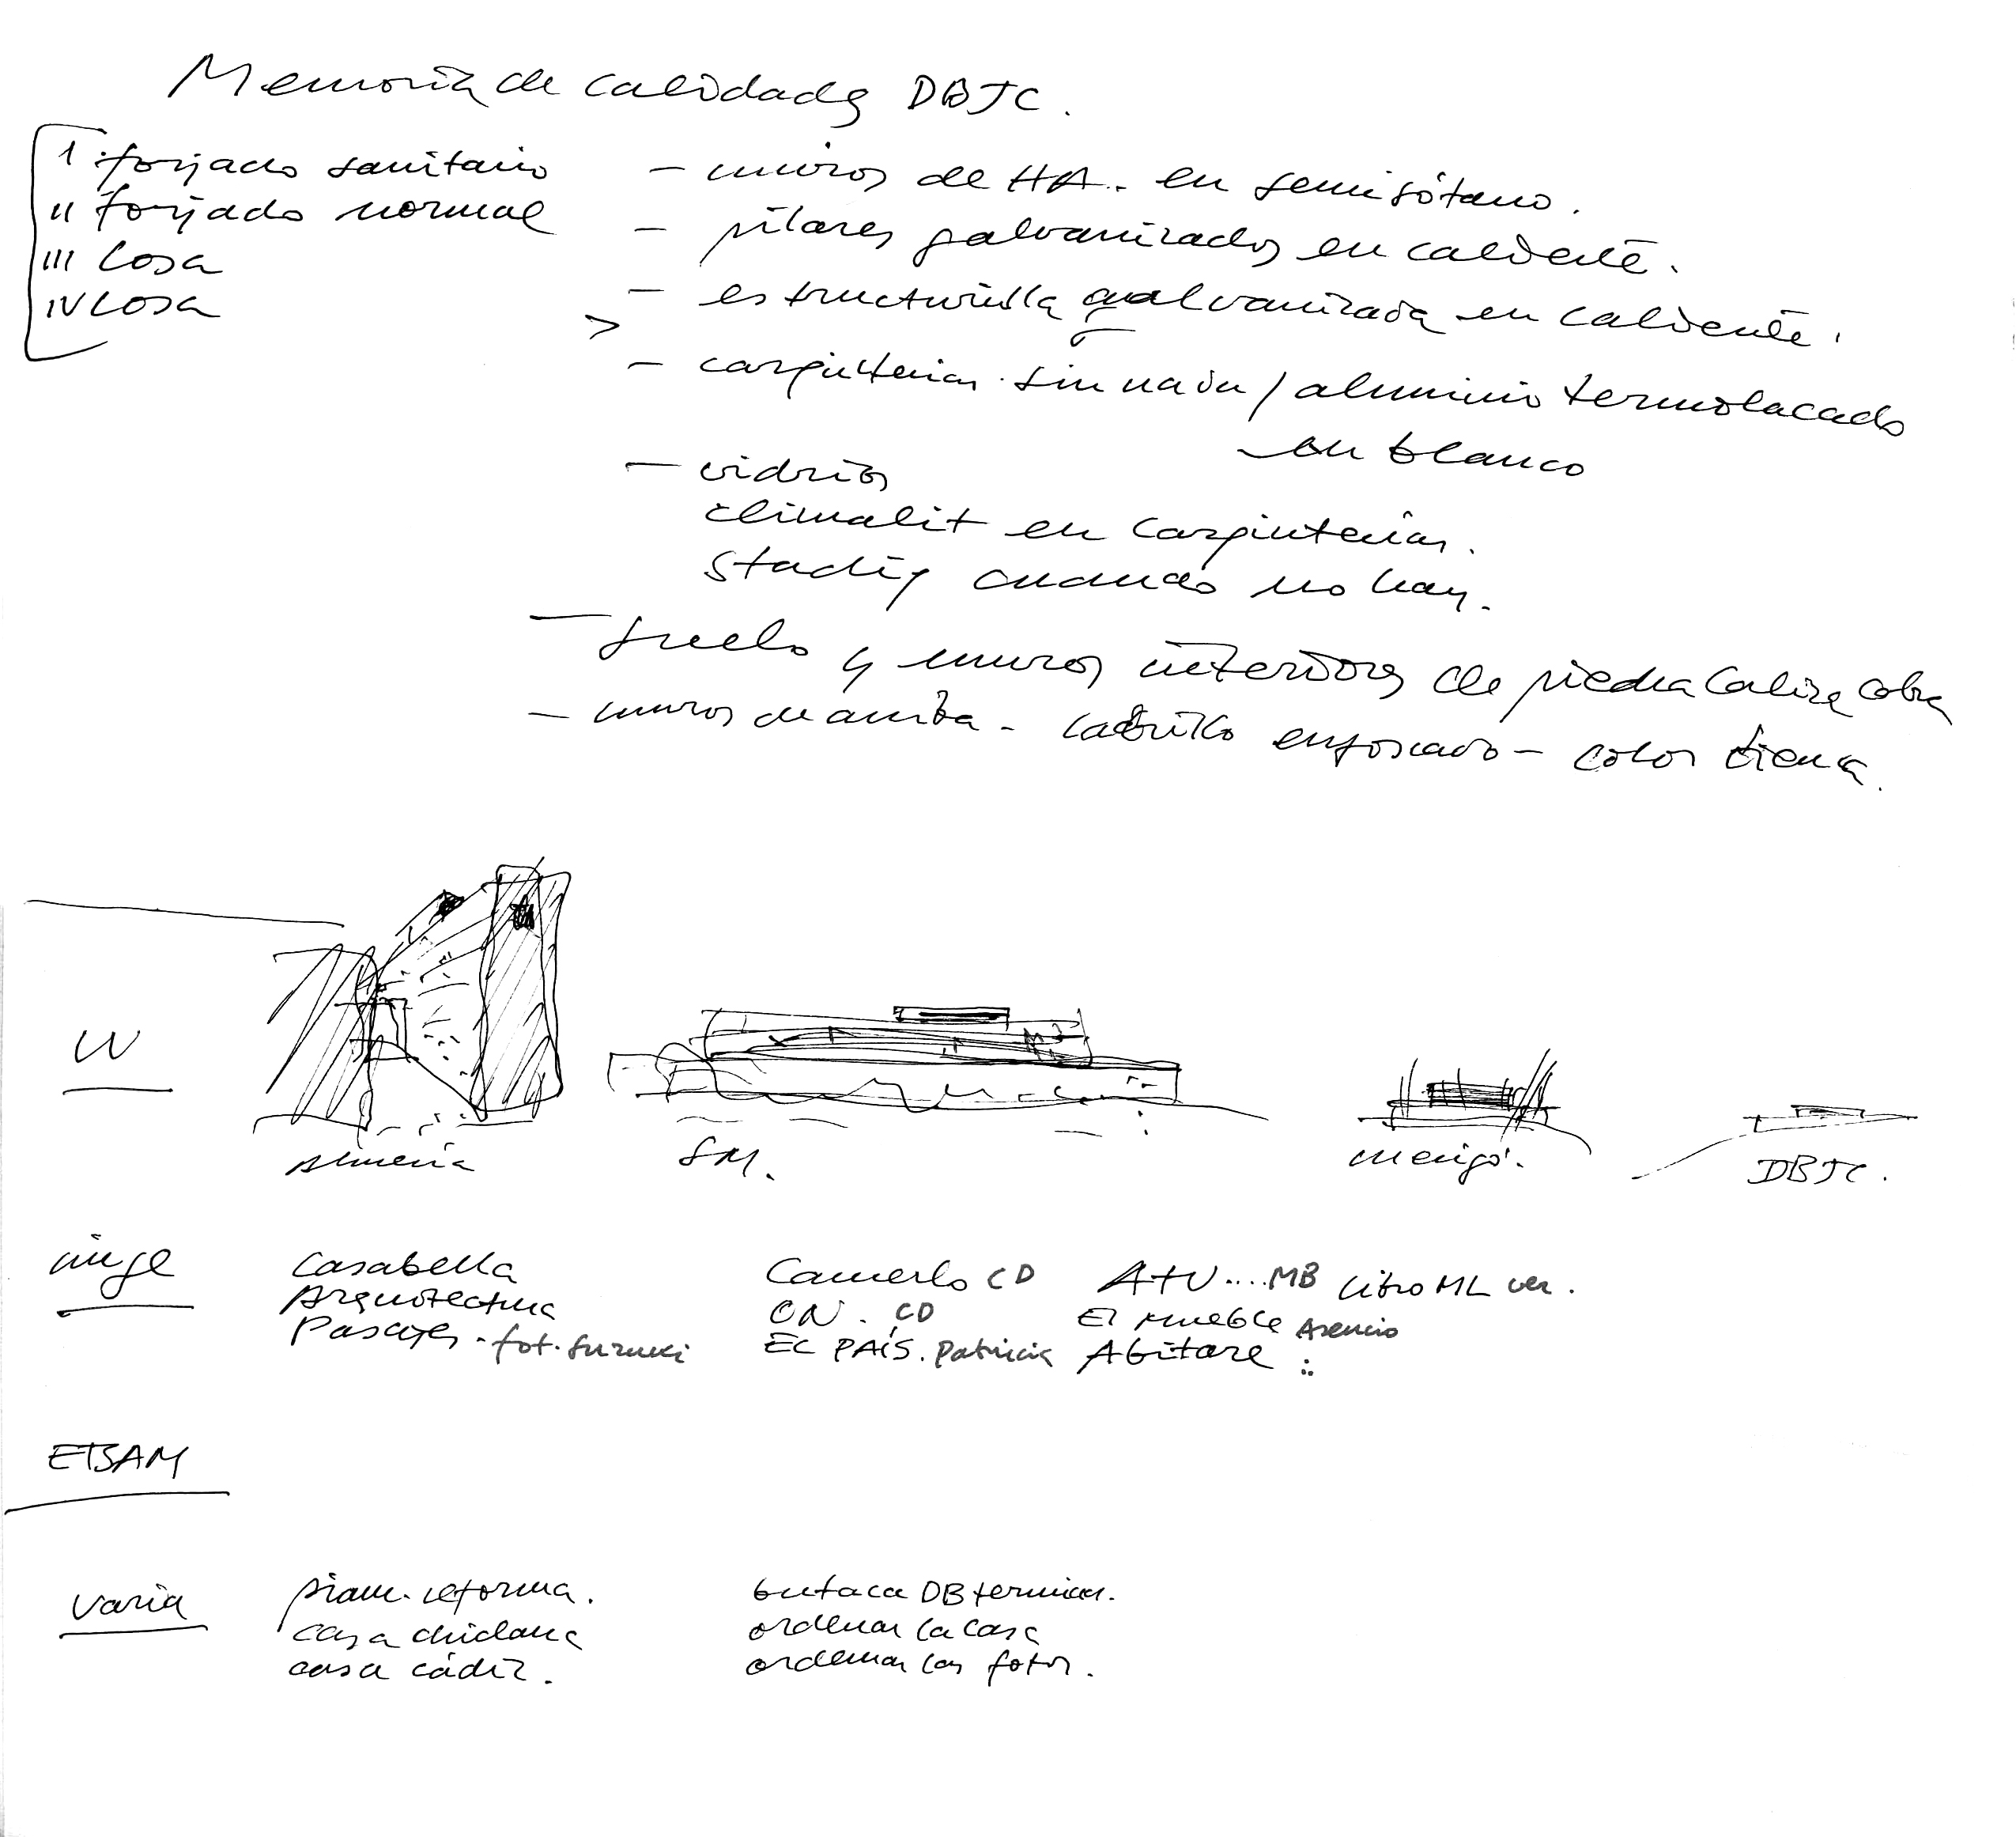 Memoria de calidades DBJC.
I forjado sanitario
II forjado normal
III losa
IV losa
- muros de HA. en semisótano.
- pilares galvanizados en caliente.
- estructurilla galvanizada en caliente.
- carpinterias. sin nada / aluminio termolacado
en blanco
- vidrios
climalit en carpinterias.
stadip cuando no hay.
- suelo y muros interiores de piedra caliza
- muros de arriba - ladrillo enfoscado - color tierra.
Almeria
SM.
DBJC.
Casabella
Arquitectura
Pasajes. fot. Suzuki
CD
ON. CD
EL PAÍS. Patricia
A+U.... MB libro ML ver.
El Mueble Asensio
Abitare :
ETSAM
varia
piam. reforma.
casa
casa cádiz.
butaca DB terminar.
ordenar la casa
ordenar las fotos.